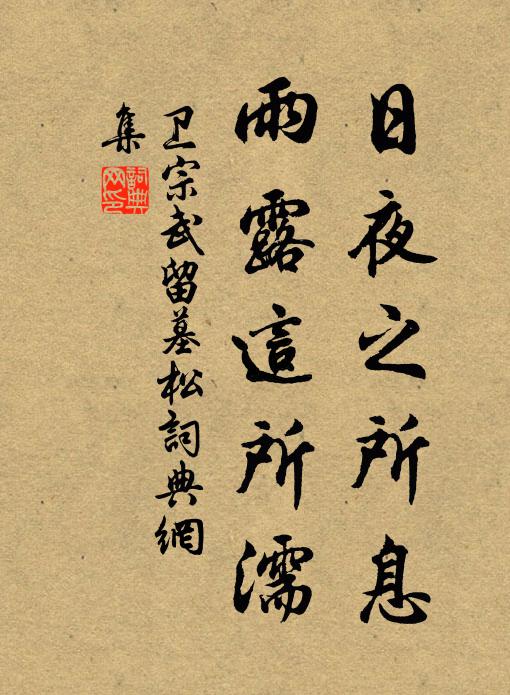 日夜之所息
雨露這所濡
卫宗武留墓松詞典網
集
詞典
网印